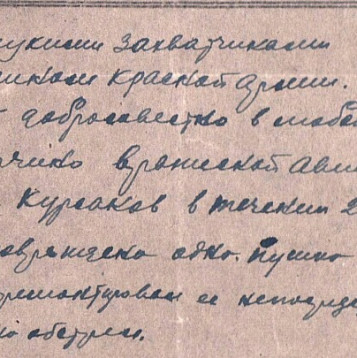 цкими захватчиками
иком красной Армии.
добросовестно в любой
вражеской Авиа
Курсаков в течении 2
овреждено одно. Пушко
ремонтировал ее непосред
обстрел.